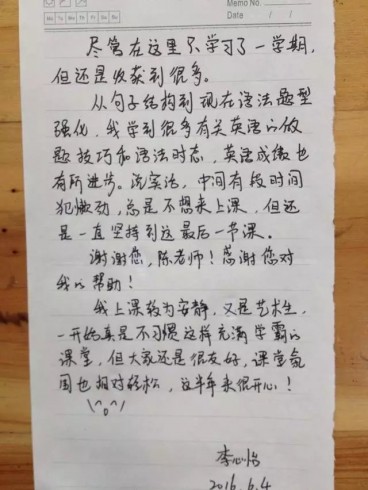 Memo No.
Date / /
Mo Tu We Th Fr Sa Su
尽管在这里只学习了一学期,
但还是收获到很多。
从句子结构到现在语法题型
强化,我学到很多有关英语的做
题技巧和语法时态,英语成绩也
有所进步。说实话,中间有段时间
犯懒劲,总是不想来上课,但还
是一直坚持到这最后一节课。
谢谢您,陈老师!感谢您对
我的帮助!
我上课较为安静,又是艺术生,
一开始真是不习惯这样充满学霸的
课堂,但大家还是很友好,课堂氛
围也相对轻松,这半年来很开心!
\^o^/
李心怡
2016.6.4